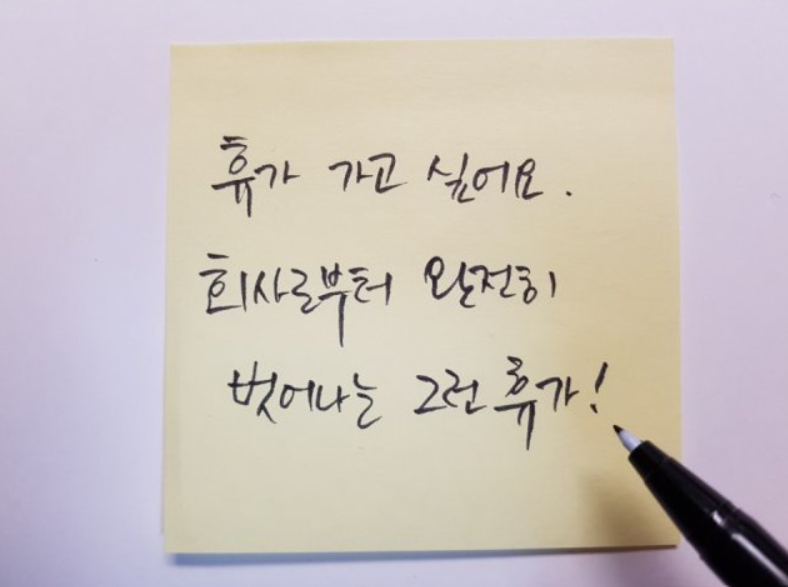 휴가 가고 싶어요.
회사로부터 완전히
벗어나는 그런 휴가!